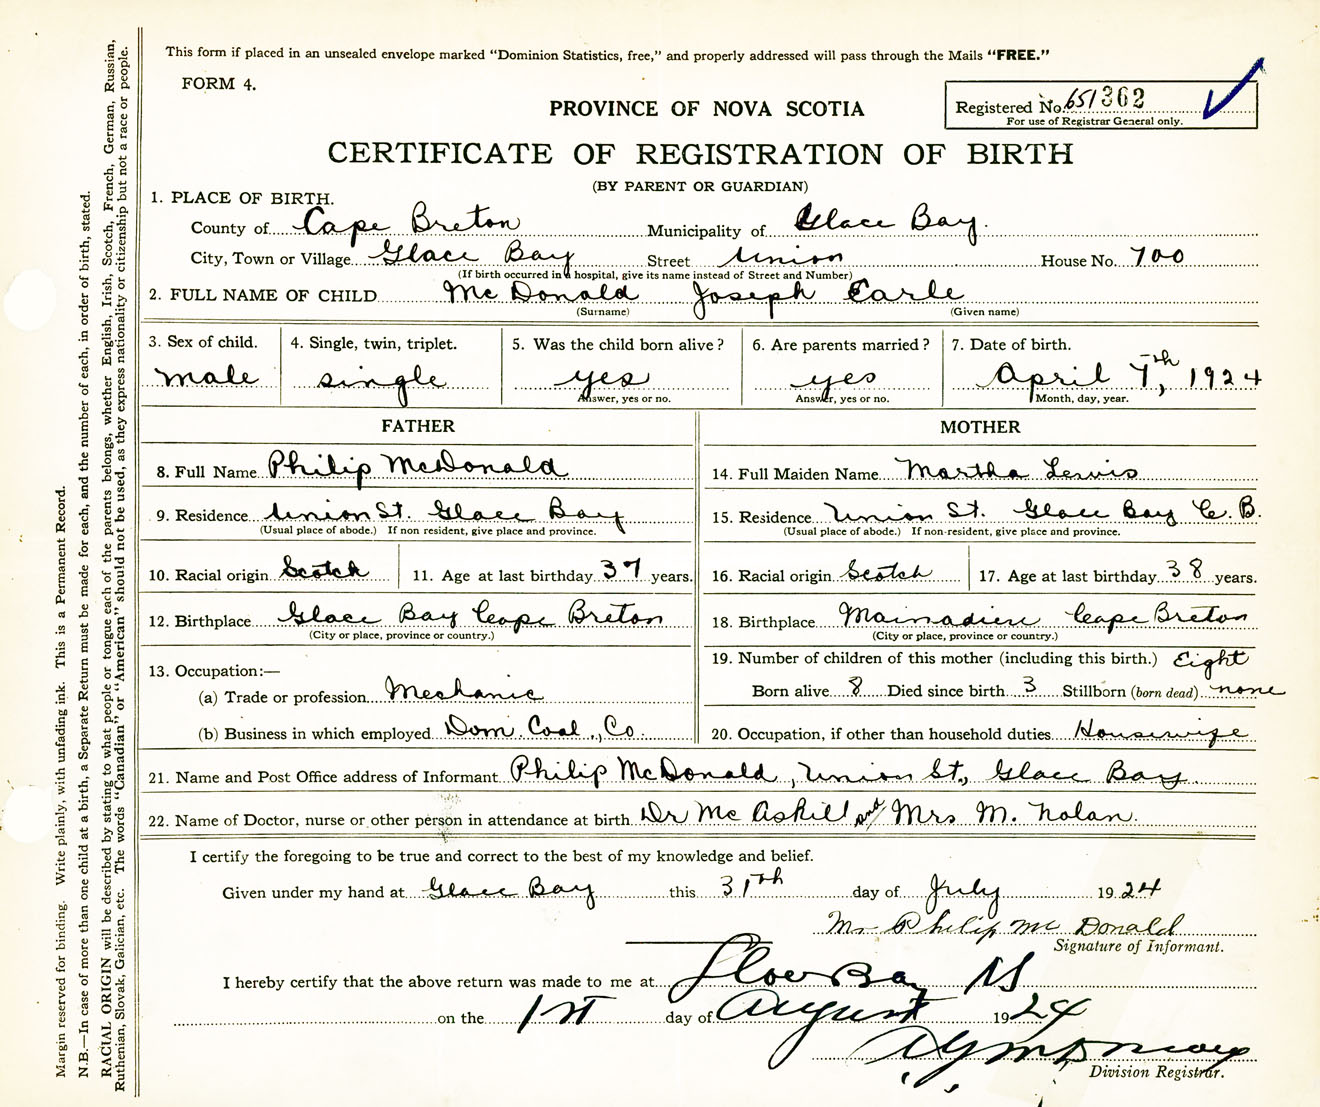 This form if placed in an unsealed envelope marked "Dominion Statistics, free," and properly addressed will pass through the Mails "FREE."
FORM 4.
Registered No. 651362
For use of Registrar General only.
PROVINCE OF NOVA SCOTIA
CERTIFICATE OF REGISTRATION OF BIRTH
(BY PARENT OR GUARDIAN)
1. PLACE OF BIRTH.
County of Cape Breton Municipality of Glace Bay.
City, Town or Village Glace Bay Street Union House No. 700
(If birth occurred in a hospital, give its name instead of Street and Number)
2. FULL NAME OF CHILD McDonald Joseph Earle
(Surname) (Given name)
3. Sex of child. 4. Single, twin, triplet. 5. Was the child born alive? 6. Are parents married? 7. Date of birth.
male single yes yes April 7th, 1924
Answer, yes or no. Answer, yes or no. Month, day, year.
FATHER MOTHER
8. Full Name Philip McDonald 14. Full Maiden Name Martha Lewis
9. Residence Union St. Glace Bay 15. Residence Union St. Glace Bay C.B.
(Usual place of abode.) If non resident, give place and province. (Usual place of abode.) If non-resident, give place and province.
10. Racial origin Scotch 11. Age at last birthday 37 years. 16. Racial origin Scotch 17. Age at last birthday 38 years.
12. Birthplace Glace Bay Cape Breton 18. Birthplace Mainadieu Cape Breton
(City or place, province or country.) (City or place, province or country.)
13. Occupation:— 19. Number of children of this mother (including this birth.) Eight
(a) Trade or profession Mechanic Born alive 8 Died since birth 3 Stillborn (born dead) none
(b) Business in which employed Dom. Coal., Co. 20. Occupation, if other than household duties Housewife
21. Name and Post Office address of Informant Philip McDonald, Union St., Glace Bay
22. Name of Doctor, nurse or other person in attendance at birth Dr McAskill and Mrs M. Nolan.
I certify the foregoing to be true and correct to the best of my knowledge and belief.
Given under my hand at Glace Bay this 31th day of July 1924
Mr Philip McDonald
Signature of Informant.
I hereby certify that the above return was made to me at Glace Bay NS
on the 1st day of August 1924
Division Registrar.
Margin reserved for binding. Write plainly, with unfading ink. This is a Permanent Record.
N.B.—In case of more than one child at a birth, a Separate Return must be made for each, and the number of each, in order of birth, stated.
RACIAL ORIGIN will be described by stating to what people or tongue each of the parents belongs, whether English, Irish, Scotch, French, German, Russian,
Ruthenian, Slovak, Galician, etc. The words "Canadian" or "American" should not be used, as they express nationality or citizenship but not a race or people.